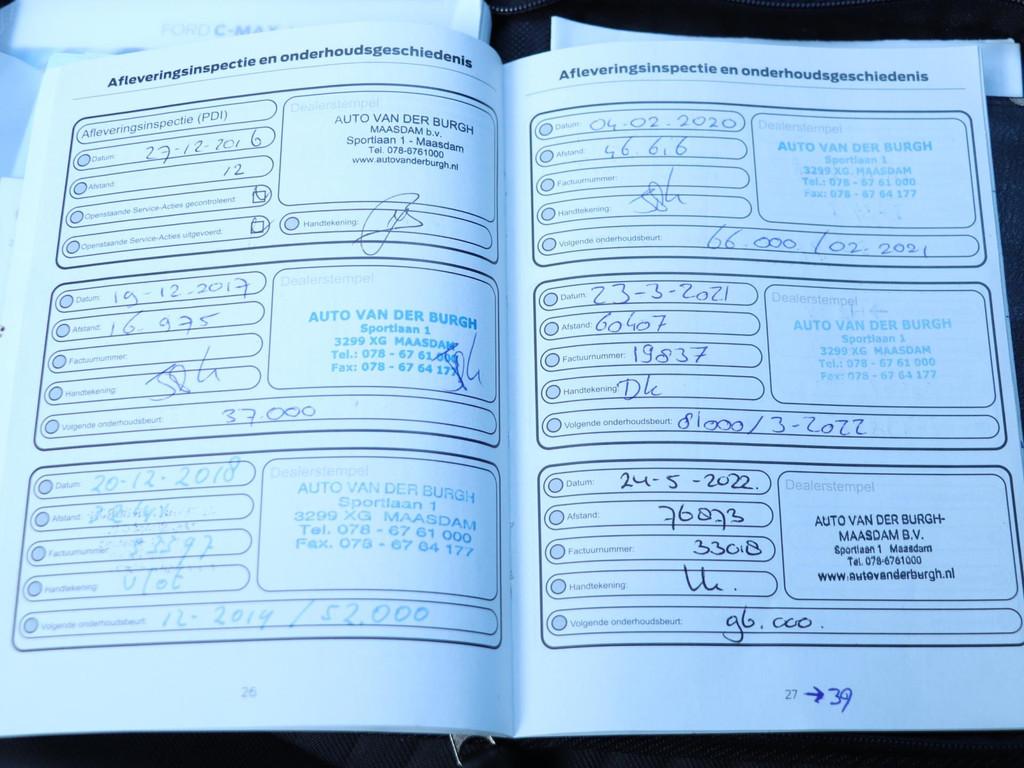 FORD C-MAX
Afleveringsinspectie en onderhoudsgeschiedenis
Afleveringsinspectie (PDI)
Datum: 27-12-2016
Afstand: 12
Openstaande Service-Acties gecontroleerd:
Openstaande Service-Acties uitgevoerd:
Dealerstempel
AUTO VAN DER BURGH
MAASDAM b.v.
Sportlaan 1 - Maasdam
Tel. 078-6761000
www.autovanderburgh.nl
Handtekening:
Datum: 19-12-2017
Afstand: 16.975
Factuurnummer:
Handtekening:
Volgende onderhoudsbeurt: 37.000
Dealerstempel
AUTO VAN DER BURGH
Sportlaan 1
3299 XG MAASDAM
Tel.: 078 - 67 61 000
Fax: 078 - 67 64 177
Datum: 20-12-2018
Afstand:
Factuurnummer:
Handtekening: Vlot
Volgende onderhoudsbeurt: 12-2019 / 52.000
Dealerstempel
AUTO VAN DER BURGH
Sportlaan 1
3299 XG MAASDAM
Tel. 078 - 67 61 000
Fax. 078 - 67 64 177
26
Afleveringsinspectie en onderhoudsgeschiedenis
Datum: 04-02-2020
Afstand: 46.616
Factuurnummer:
Handtekening:
Volgende onderhoudsbeurt: 66.000 / 02-2021
Dealerstempel
AUTO VAN DER BURGH
Sportlaan 1
3299 XG MAASDAM
Tel.: 078 - 67 61 000
Fax: 078 - 67 64 177
Datum: 23-3-2021
Afstand: 60407
Factuurnummer: 19837
Handtekening: Dk
Volgende onderhoudsbeurt: 81000 / 3-2022
Dealerstempel
AUTO VAN DER BURGH
Sportlaan 1
3299 XG MAASDAM
Tel.: 078 - 67 61 000
Fax: 078 - 67 64 177
Datum: 24-5-2022.
Afstand: 76873
Factuurnummer: 33018
Handtekening:
Volgende onderhoudsbeurt: 96.000.
Dealerstempel
AUTO VAN DER BURGH-
MAASDAM B.V.
Sportlaan 1 Maasdam
Tel. 078-6761000
www.autovanderburgh.nl
27 → 39